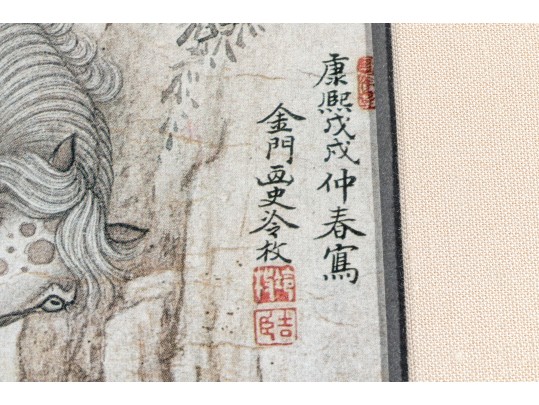 康熙戊戌仲春寫
金門画史冷枚